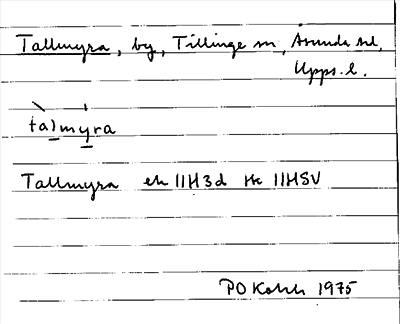 Tallmyra, by, Tillinge sn, Åsunda hd,
Upps. l.
talmyra
Tallmyra ek 11H3d Hk 11HSV
PO 1975